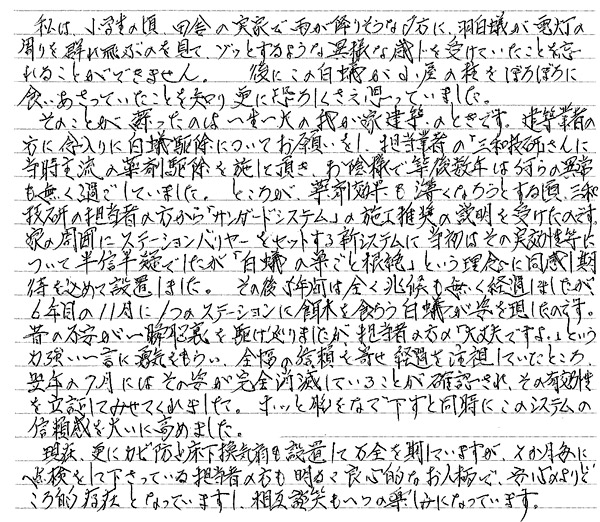 私は、小学生の頃、田舎の実家で雨が降りそうな夕方に、羽白蟻が電灯の
周りを群れ飛ぶのを見て、ゾッとするような異様な感じを受けていたことを忘
れることができません。 後にこの白蟻が小屋の柱をぼろぼろに
食いあさっていたことを知り更に恐ろしくさえ思っていました。
そのことが蘇ったのは一生一大の我が家建築のときです。建築業者の
方に念入りに白蟻駆除についてお願いをし、担当業者の「三和技研さんに
当時主流の薬剤駆除を施して頂き、お陰様で築後数年は何らの異常
も無く過ごしていました。ところが、薬剤効果も薄くなろうとする頃、三和
技研の担当者の方から「サンガードシステム」の施工推奨の説明を受けたのです。
家の周囲にステーションバリヤーをセットする新システムに当初はその実効性等に
ついて半信半疑でしたが「白蟻の巣ごと根絶」という理念に同感し期
待を込めて設置しました。その後5年間は全く兆候も無く経過しましたが、
6年目の11月に1つのステーションに餌木を食らう白蟻が姿を現したのです。
昔の不安が一瞬脳裏を駆け巡りましたが担当者の方の「大丈夫ですよ。」という
力強い一言に勇気をもらい、全幅の信頼を寄せ経過を注視していたところ、
翌年の7月にはその姿が完全消滅していることが確認され、その有効性
を立証してみせてくれました。ホッと胸をなで下すと同時にこのシステムの
信頼感を大いに高めました。
現在、更にカビ防止床下換気扇も設置して万全を期していますが、4か月毎に
点検をして下さっている担当者の方も明るく良心的なお人柄で、安心のよりど
ころ的存在となっていますし、相互談笑も一つの楽しみになっています。